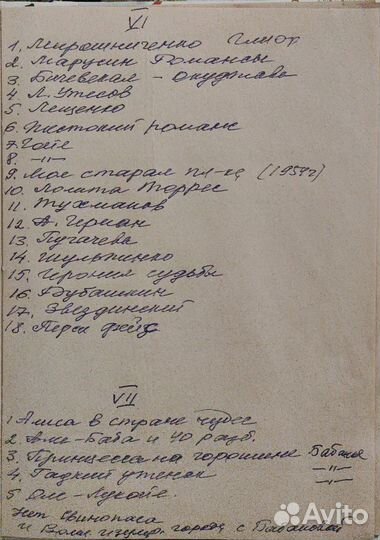 VI
1. Мирошниченко
2. Марусин Романсы
3. Бичевская - Окуджава
4. Л. Утесов
5. Лещенко
6. Жестокий романс
7. Гойе
8. -"-
9. Мос старая пл-ка (1959г)
10. Лолита Торрес
11. Тухманов
12. А. Герман
13. Пугачева
14. Шульженко
15. Ирония судьбы
16. Дубашкин
17. Звездинский
18. Перл
VII
1 Алиса в стране чудес
2 Али-Баба и 40 разб.
3. Принцесса на горошине Бабанов
4. Гадкий утенок -"-
5 Оле-Лукойе. -"-
Нет Свинопаса
и Волш города с
Avito